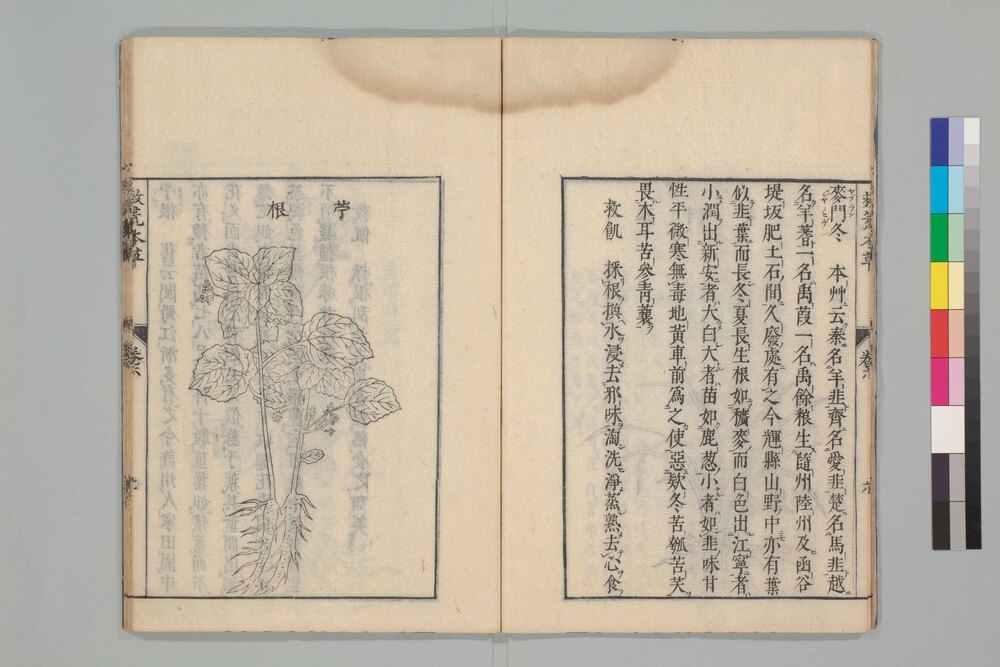 麥門冬 本艸云秦名羊韭齊名愛韭楚名馬韭越
名羊蓍一名禹葭一名禹餘粮生隨州陸州及函谷
堤坂肥土石間久廢處有之今輝縣山野中亦有葉
似韭葉而長冬夏長生根如穬麥而白色出江寧者
小潤出新安者大白大者苗如鹿葱小者如韭味甘
性平微寒無毒地黃車前為之使惡欵冬苦瓠苦芺
畏木耳苦參靑蘘
救飢 採根換水浸去邪味淘洗淨蒸熟去心食
苧根
救荒本草 卷六